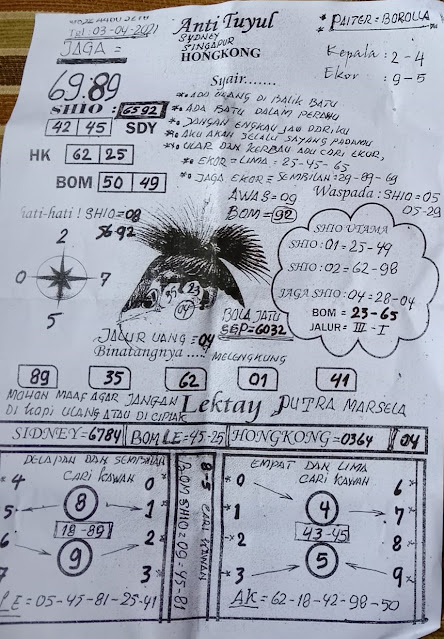 Tgl : 03-04-2021
JAGA =
Anti Tuyul
SYDNEY
SINGAPUR
HONGKONG
* PAITER = BOROLLA
Kepala : 2 - 4
Ekor : 9 - 5
69:89
SHIO : 6592
42 45 SDY
HK 62 25
BOM 50 49
Syair.......
ADU ULANG DI BALIK BATU
ADA BATU DALAM PERAHU
JANGAN ENGKAU JAU DARIKU
AKU AKAN SELALU SAYANG PADAMU
ULAR DAN KERBAU ADU CARI EKUR,
EKOR = LIMA : 25-45-65
JAGA EKOR = SEMBILAN : 29-89-69
AWAS = 09
BOM = 92
Waspada : SHIO = 05
05-29
hati-hati ! SHIO = 08
5692
2
0
7
5
04
SHIO UTAMA
SHIO : 01 = 25-49
SHIO : 02 = 62-98
JAGA SHIO : 04 = 28-04
BOM = 23-65
JALUR = III - I
BOLA JATU
SGP = 6032
JALUR UANG = 04
Binatangnya ....
MELENGKUNG
89 35 62 01 41
MOHON MAAF AGAR JANGAN
DI KOPI ULANG ATAU DI CIPLAK
Lektay PUTRA MARSELA
SIDNEY = 6784 BOM LE = 45-25 HONGKONG = 0364 04
DELAPAN DAN SEMBILAN
CARI KAWAN
4 0
5 8 1
18-89
6 9 2
7 3
LE = 05-45-81-25-41
8-5 CARI KAWAN
BOM SHIO = 09 = 45-81
EMPAT DAN LIMA
CARI KAWAN
0 6
1 4 7
43-45
2 8
3 5 9
AK = 62-18-42-98-50